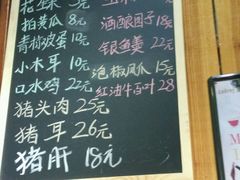 拍黄瓜 8元
酒酿圆子 18元
青椒皮蛋 10元
银鱼羹 22元
小木耳 10元
泡椒凤爪 15元
口水鸡 22元
红油牛百叶 28
猪头肉 25元
猪耳 26元
猪肝 18元